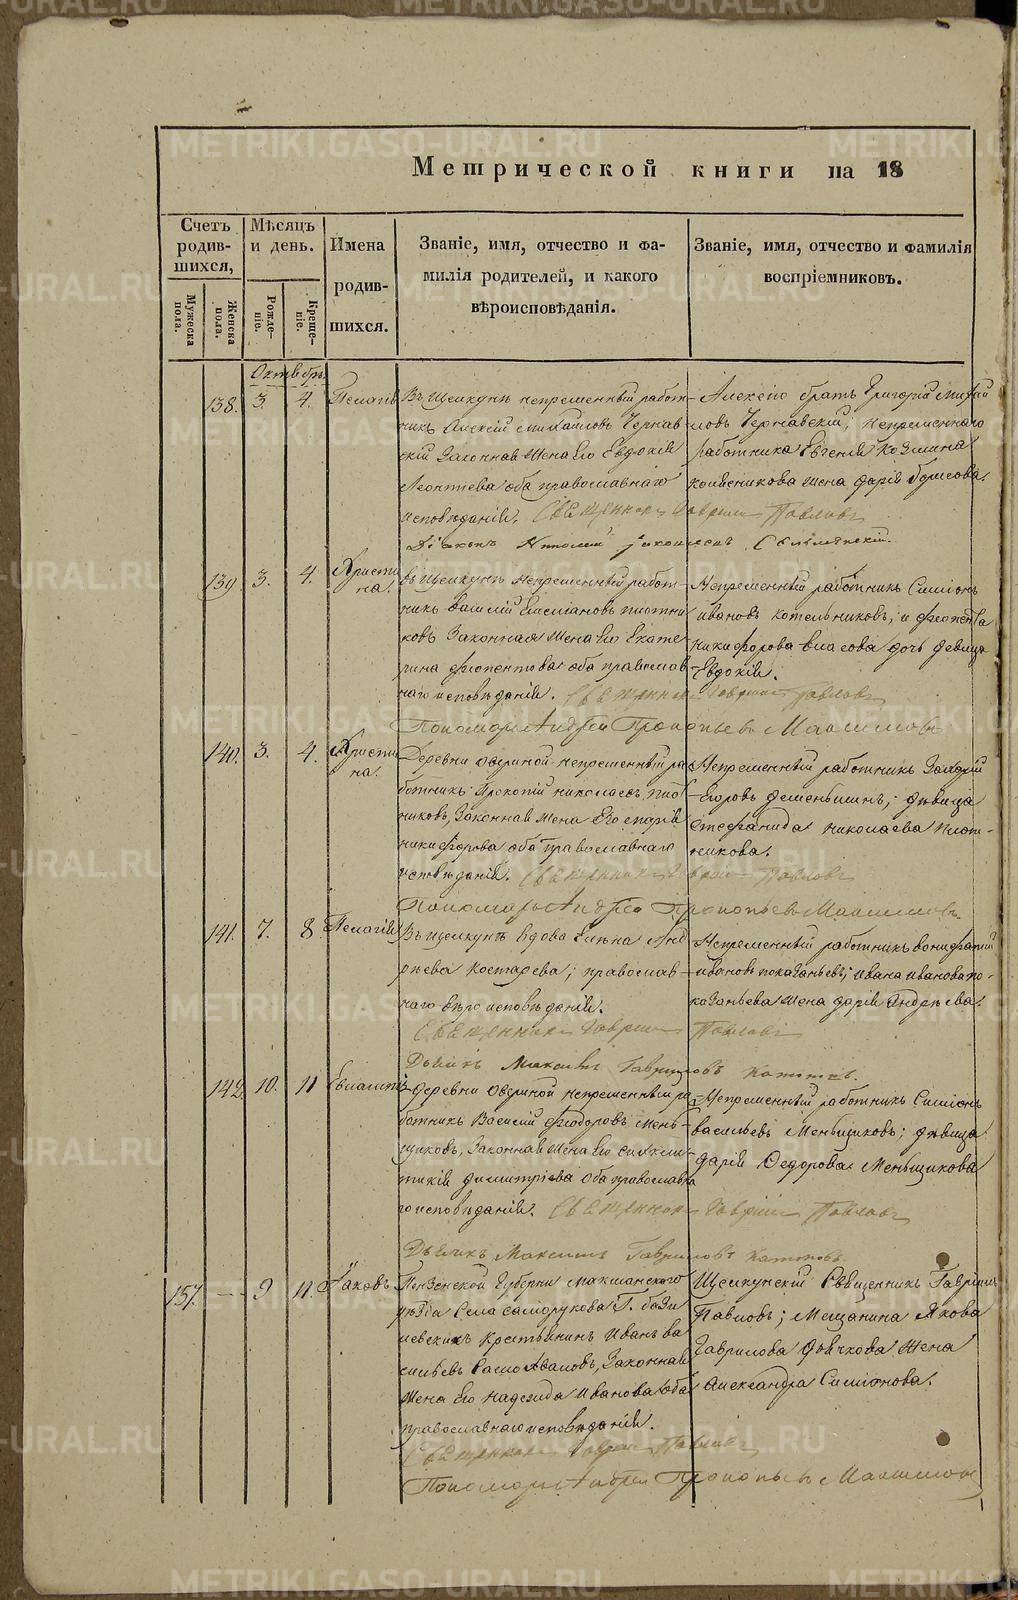 METRIKI.GASO-URAL.RU
Метрической книги на 18
Счетъ родив-шихся,
Мѣсяцъ и день.
Имена родив-шихся.
Званіе, имя, отчество и фа-
милія родителей, и какого
вѣроисповѣданія.
Званіе, имя, отчество и фамилія
воспріемниковъ.
Мужеска пола.
Женска пола.
Рожде-ніе.
Креще-ніе.
Октябрь
138. 3. 4. Пелагія
Въ Щелкунѣ непременный работ-
никъ Алексій Михайловъ Черняв-
скій Законная Жена Его Евдокія
Леонтіева оба православнаго
исповѣданія. Священникъ Гавриилъ Павловъ
Діаконъ
Алексію братъ Григорій Михай
ловъ Чернавскій; непременнаго
работника Евгенія Козмина
жена Дарія Борисова.
139 3. 4. Христи
на.
въ Щелкунѣ Непременный работ-
никъ Василій Емеліановъ плотни
ковъ Законная Жена Его Екате
рина оба православ
наго исповѣданія. Священникъ Гавриилъ Павловъ
Пономарь Андрей Прокопьевъ
Непременный работникъ Симіонъ
Ивановъ котельниковъ; и
никифорова власова дочь девица
Евдокія.
140. 3. 4. Христи
на.
Деревни Озериной непременный ра
ботникъ Прокопій николаевъ плот
никовъ, Законная жена Его марія
никифорова оба православнаго
исповѣданія. Священникъ Гавриилъ Павловъ
Пономарь Андрей Прокопьевъ
Непременный работникъ Захарій
Егоровъ деменьшинъ; дѣвица
Стефанида николаева плот-
никова.
141. 7. 8. Пелагія
Въ щелкунѣ вдова Елена Анд
рѣева костарева; православ
наго вѣро исповѣданія.
Священникъ Гавриилъ Павловъ
Дьячикъ Максимъ Гавриловъ
Непременный работникъ вонифатій
ивановъ показаньевъ; ивана иванова по-
казаньева жена дарія Андрѣева.
142. 10. 11
деревни Озериной непременный ра
ботникъ Василій Феодоровъ мень-
щиковъ, Законная Жена Его
димитріева оба православна
го исповѣданія. Священникъ Гавриилъ Павловъ
Дьячикъ Максимъ Гавриловъ
Непременный работникъ Симіонъ
васильевъ Меньщиковъ; дѣвица
дарія Федорова Меньщикова
157. — 9 11. Іаковъ
Пензенской Губерніи Мокшанскаго
уѣзда Села
Крестьянинъ Иванъ ва
сильевъ Законная
Жена Его Надежда Иванова оба
православнаго исповѣданія.
Священникъ Гавриилъ Павловъ
Пономарь Андрей Прокопьевъ
Щелкунскій Священникъ Гавріилъ
Павловъ; Мещанина Якова
Гаврилова жена
Александра Симіонова.